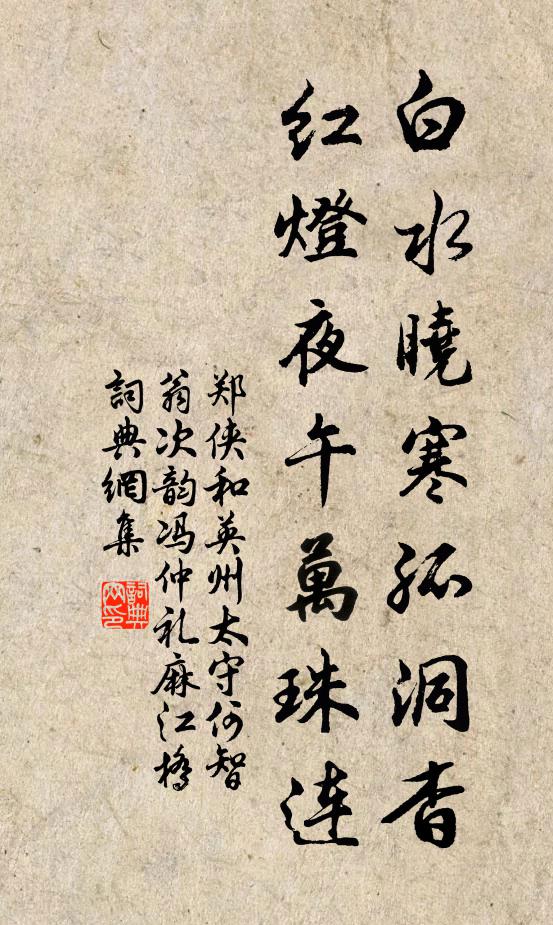 白水曉寒孤洞杳
紅燈夜午萬珠連
郑侠和英州太守何智
翁次韵冯仲礼麻江橋
詞典網集
詞典
网印